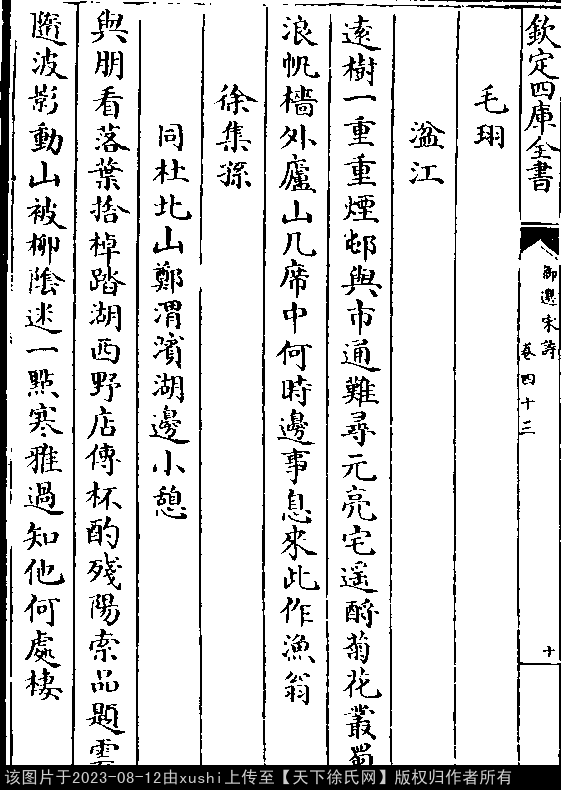 欽定四庫全書
御選宋詩
卷四十三
十
毛珝
湓江
遠樹一重重煙邨與市通難尋元亮宅遥酹菊花叢蜀
浪帆檣外廬山几席中何時邊事息來此作漁翁
徐集孫
同杜北山鄭渭濱湖邊小憩
與朋看落葉捨棹踏湖西野店傳杯酌殘陽索品題雲
隨波影動山被柳隂迷一點寒雅過知他何處棲
该图片于2023-08-12由xushi上传至【天下徐氏网】版权归作者所有